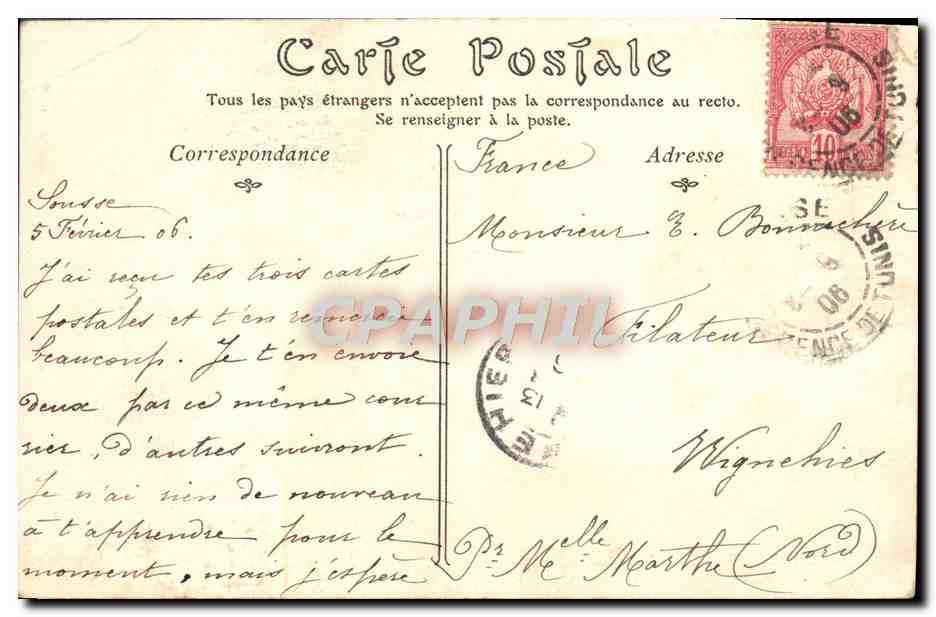 Carte Postale
Tous les pays étrangers n'acceptent pas la correspondance au recto.
Se renseigner à la poste.
Correspondance
Sousse
5 Février 06.
J'ai reçu tes trois cartes
postales et t'en remercie
beaucoup. Je t'en envoie
deux par ce même cour
rier, d'autres suivront.
Je n'ai rien de nouveau
à t'apprendre pour le
moment, mais j'espère
France
Adresse
Monsieur E. Bonnechère
Filateur
Wignehies
Pr Melle Marthe (Nord)
10
SSE
06
REGENCE DE TUNIS
SE
06
REGENCE DE TUNIS
13
CPAPHIL